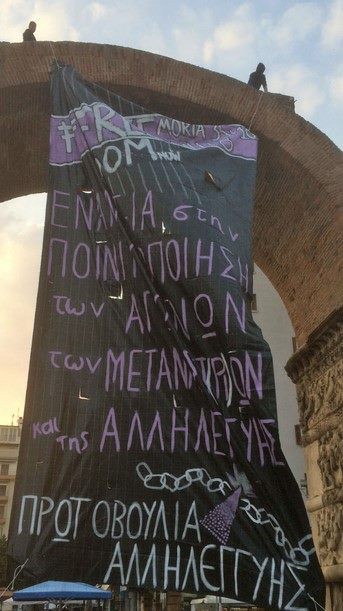 #FREE MORIA 35
ΕΝΑΝΤΙΑ στην
ΠΟΙΝΙΚΟΠΟΙΗΣΗ
των ΑΓΩΝΩΝ
των ΜΕΤΑΝΑΣΤΡΙΩΝ
και της ΑΛΛΗΛΕΓΓΥΑΣ
ΠΡΩΤΟΒΟΥΛΙΑ
ΑΛΛΗΛΕΓΓΥΗΣ